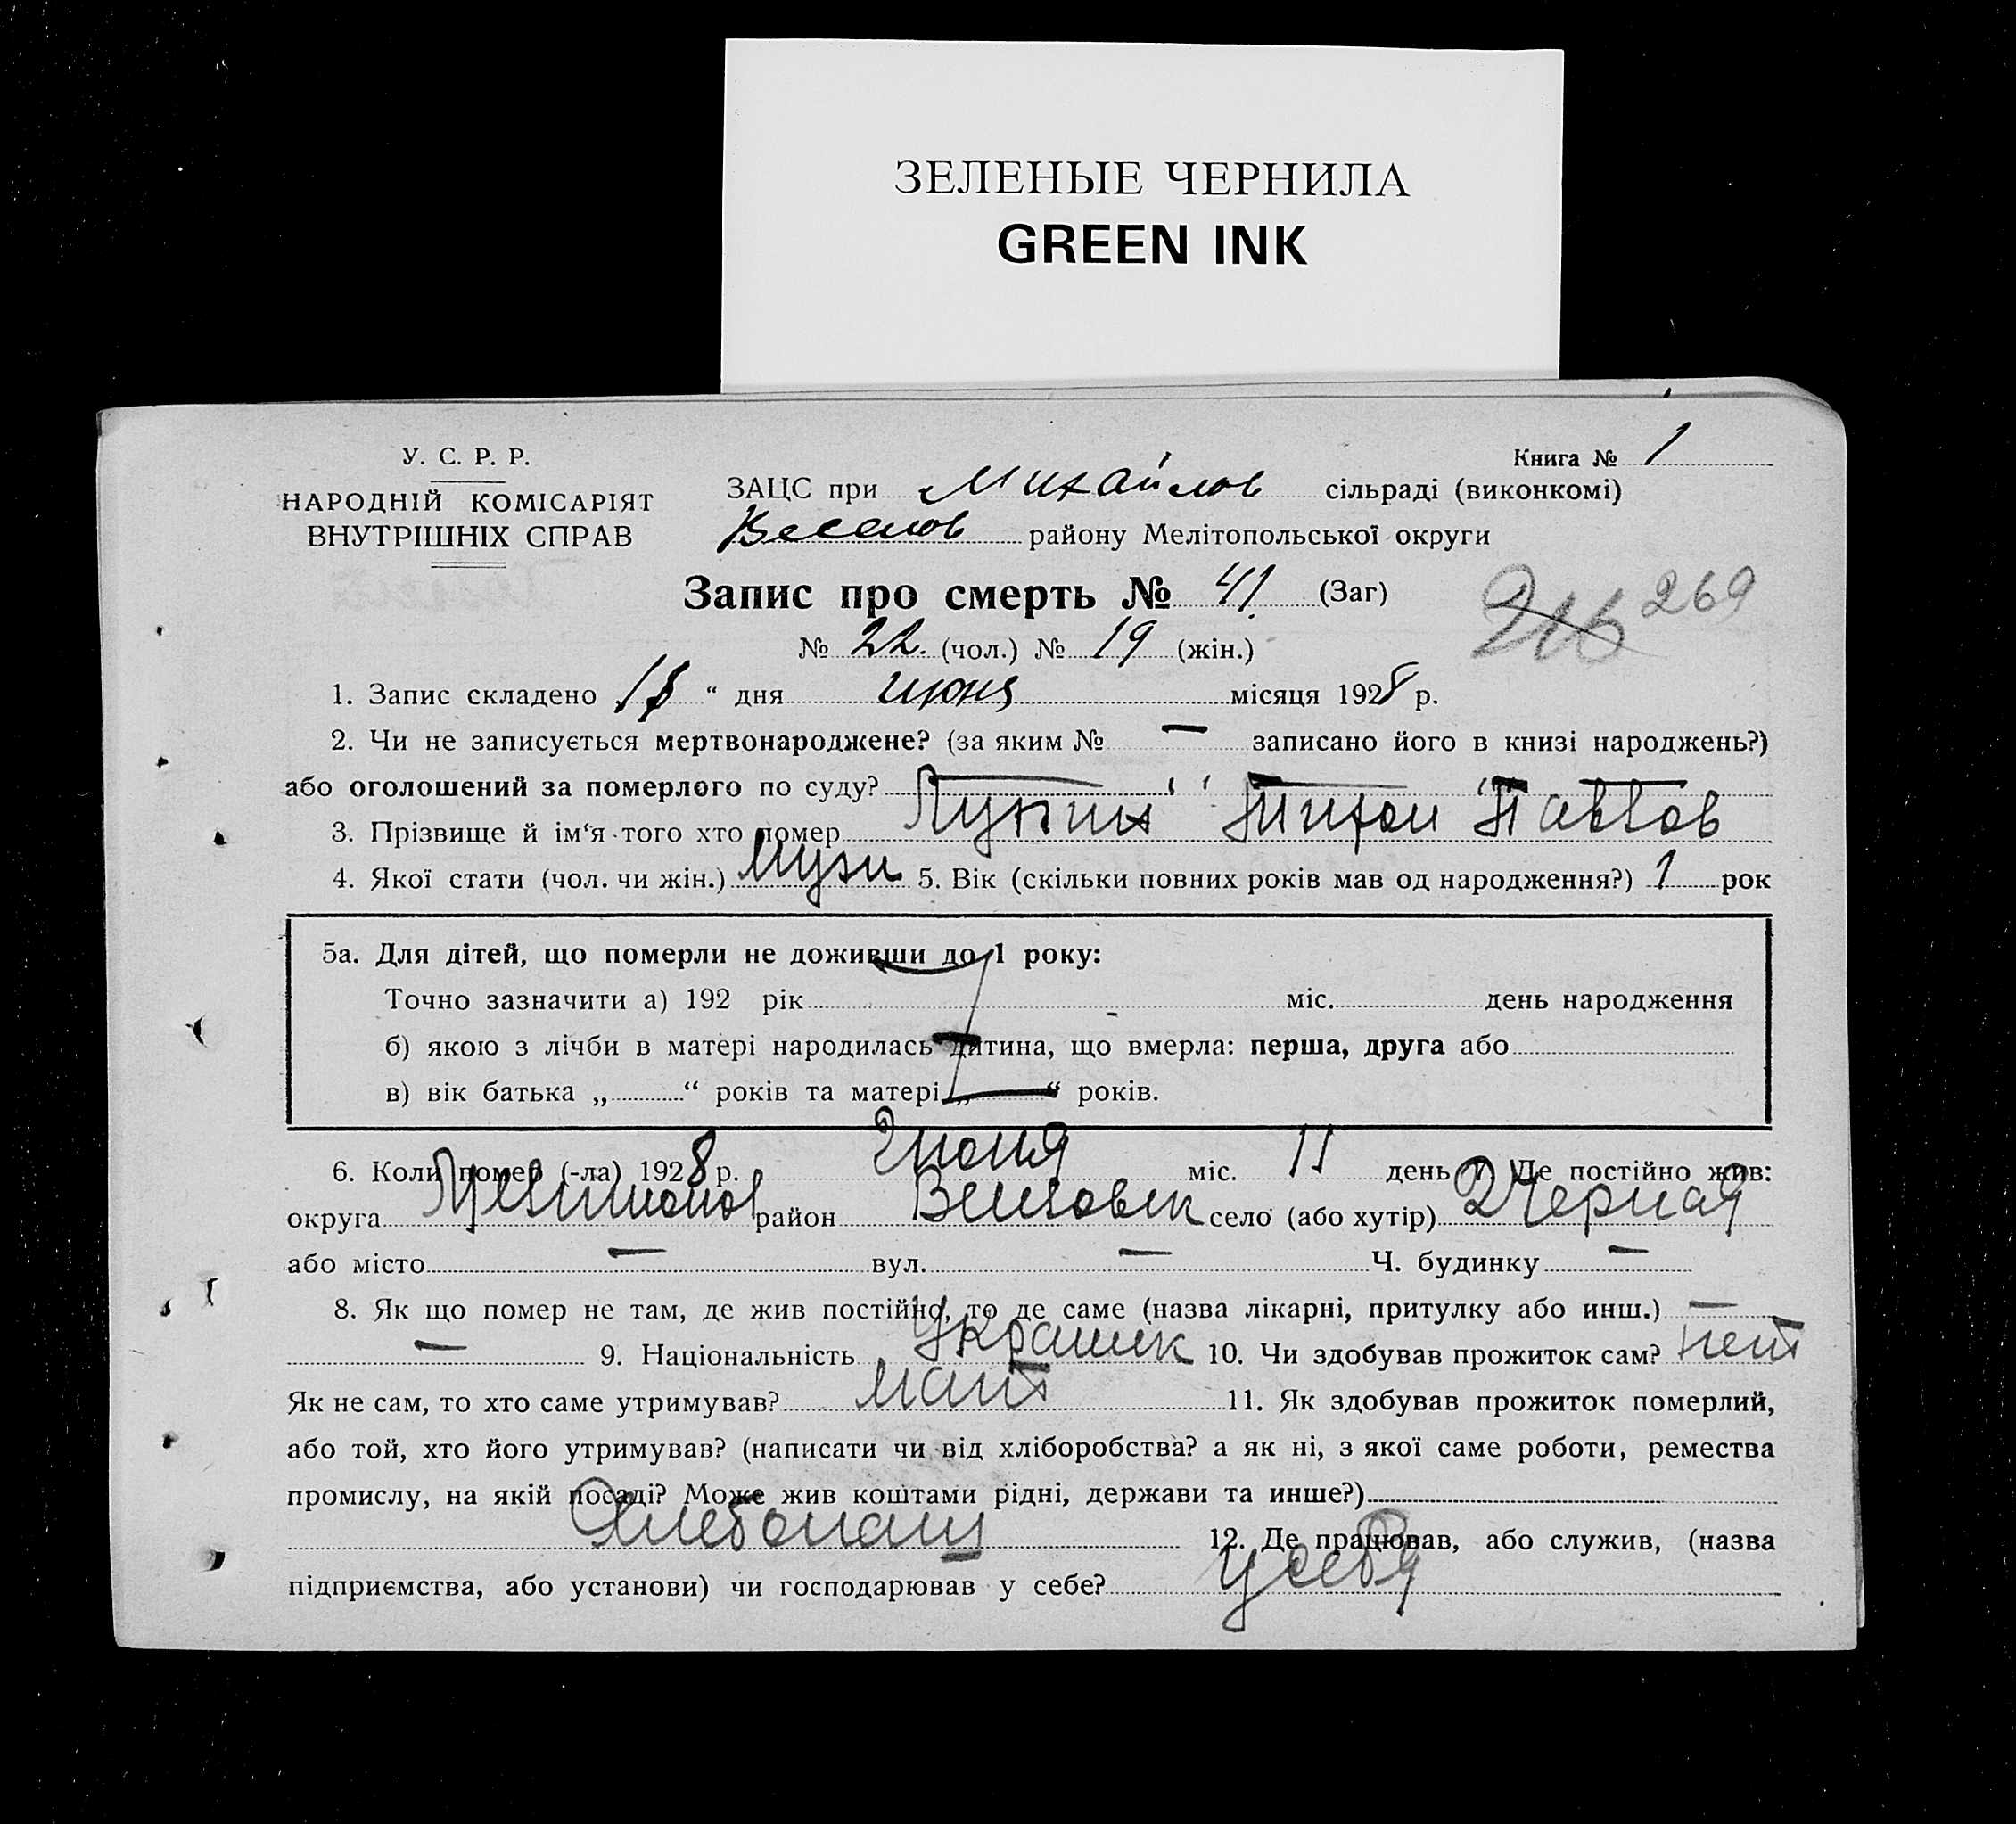 ЗЕЛЕНЫЕ ЧЕРНИЛА
GREEN INK
У. С. Р. Р.
НАРОДНІЙ КОМІСАРІЯТ
ВНУТРІШНІХ СПРАВ
Книга № 1
ЗАЦС при Михайлов сільраді (виконкомі)
Веселов району Мелітопольської округи
Запис про смерть № 41 (Заг)
269
№ 22 (чол.) № 19 (жін.)
1. Запис складено “ дня июня місяця 1928 р.
2. Чи не записується мертвонароджене? (за яким № — записано його в книзі народжень?)
або оголошений за померлого по суду?
3. Прізвище й ім‘я того хто помер Павлов
4. Якої стати (чол. чи жін.) Муж 5. Вік (скільки повних років мав од народження?) 1 рок
5а. Для дітей, що померли не доживши до 1 року:
Точно зазначити а) 192 рік міс. день народження
б) якою з лічби в матері народилась дитина, що вмерла: перша, друга або
в) вік батька „ “ років та матері „ “ років.
6. Коли помер (-ла) 1928 р. Июня міс. 11 день 7. Де постійно жив:
округа район село (або хутір) Черная
або місто — вул. — Ч. будинку —
8. Як що помер не там, де жив постійно, то де саме (назва лікарні, притулку або инш.) —
— 9. Національність 10. Чи здобував прожиток сам? нет
Як не сам, то хто саме утримував? мать 11. Як здобував прожиток померлий,
або той, хто його утримував? (написати чи від хліборобства? а як ні, з якої саме роботи, ремества
промислу, на якій посаді? Може жив коштами рідні, держави та инше?)
Хлебопаш 12. Де працював, або служив, (назва
підприємства, або установи) чи господарював у себе? у себя